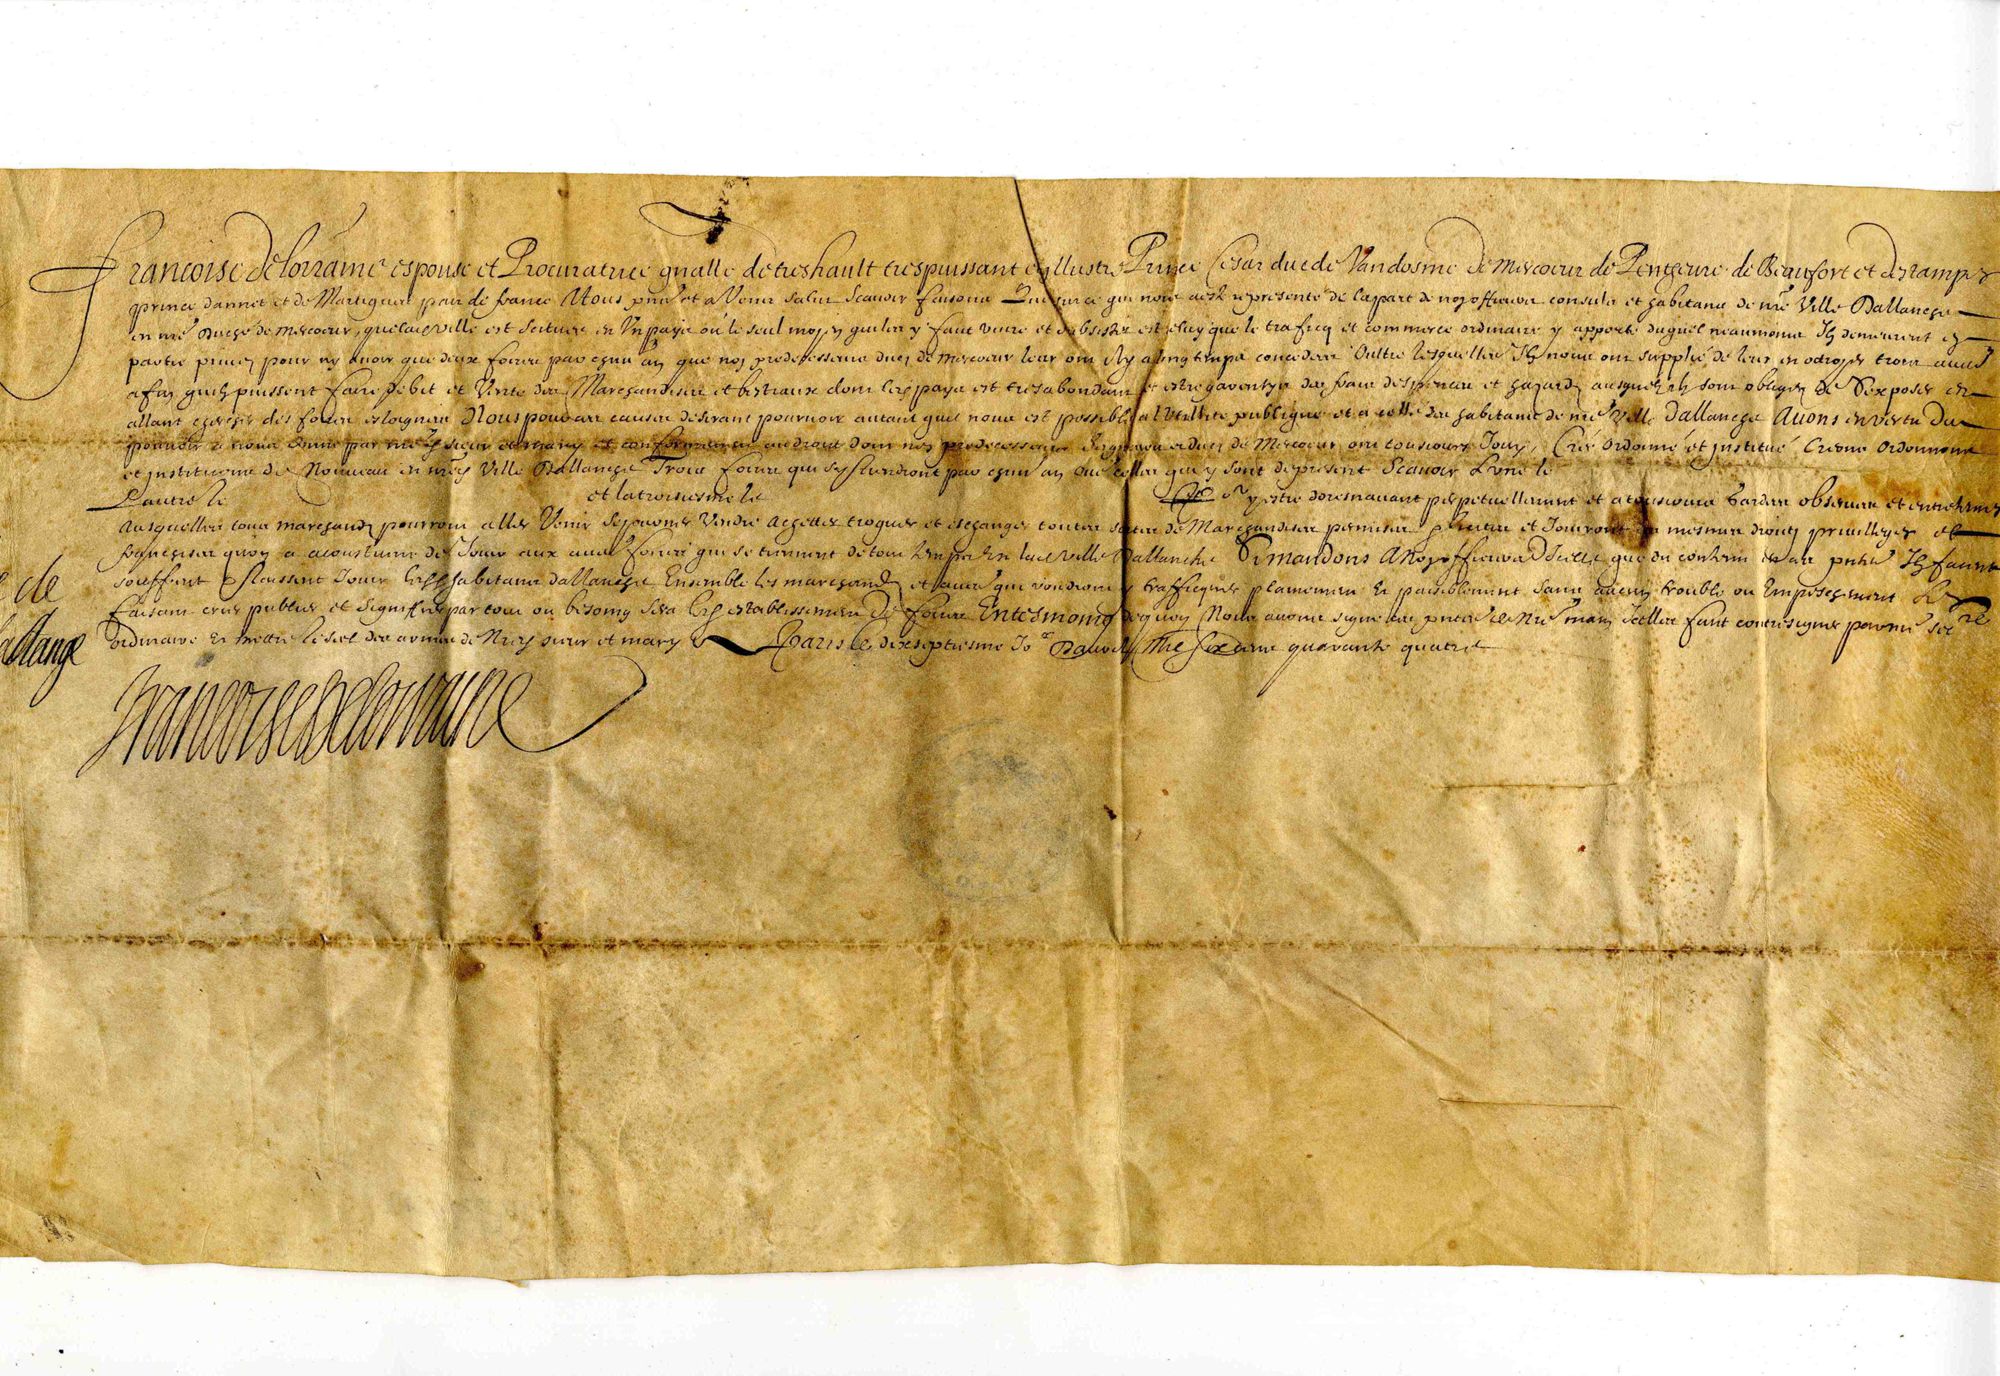 Francoise de lorraine espouse et Procuratrice gnalle de treshault trespuissant et Illustre Prince Cesar duc de Vandosme de Mercoeur de Pentheure de Beaufort et destampes
Prince dannet et de Martigues pair de france A tous pns et a Venir salut Scauoir faisons Que sur ce qui nous a esté representé de la part de noz officiers consulz et habitans de nre Ville Dallanche
en nre Duché de mercoeur, que lade ville est scituée en Vn paÿs où le seul moyen quil y faut viure et subsister est celuy que le traficq et commerce ordinaire y apporte duquel neaumoins Ilz demeurent en
partie priuez pour ny auoir que deux foires par chun an que noz predecesseurs ducz de Mercoeur leur ont dez a longtemps concedées Oultre lesquelles Ilz nous ont supplié de leur en octroyer trois aues
afin quilz puissent faire debit et Vente des Marchandises et bestiaux dont led paÿs est tres abondant et estre garentyz des frais despences et hazardz ausquelz ilz sont obligez de sexposer en
allant chercher des foires esloignées Nous pour ces causes desirant pouruoir autant que nous est possible a lutilité publique et a celle des habitans de nre ville dallanche Auons en vertu du
pouuoir a nous donné par nred sieur et mary et conformement au droit dont noz predecesseurs Seigneurs et ducz de Mercoeur ont tousiours Jouy, Creé ordonné et institué Creons ordonnons
et instituons de Nouueau en nred Ville Dallanche Trois foires qui sy tiendront par chun an Oue celles qui y sont de present Scauoir Lvne le
Lautre le et la troisiesme le pour y estre doresnauant perpetuellement et a tousiours gardées obseruées et entretenues
Ausquelles tous marchandz pourront aller Venir sejourner Vendre achepter troquer et eschanger toutes sortes de Marchandises permises et Jouiront des mesmes droitz priuileges et
franchises quon a acoustumé de Jouir aux aues foires qui se tiennent de tout temps en lade ville Dallanche Sy mandons A Noz officiers dicelle que du contenu en ces pntes Ilz facent
souffrent et laissent Jouir lesd habitans dallanche Ensemble les marchandz et aues qui voudront y trafficquer plainement et paisiblement sans aucun trouble ou Empeschement Et
faisant crier publier et signiffier par tout ou besoing sera led establissement de foires En tesmoing dequoy Nous auons signé ces pntes de Nre main Icelles fait contresigner par nre secre
ordinaire et mettre le scel des armes de Nred sieur et mary A Paris le dixseptiesme Jor Dauril Mil six cens quarante quatre
de
allanche
Francoise de Lorraine